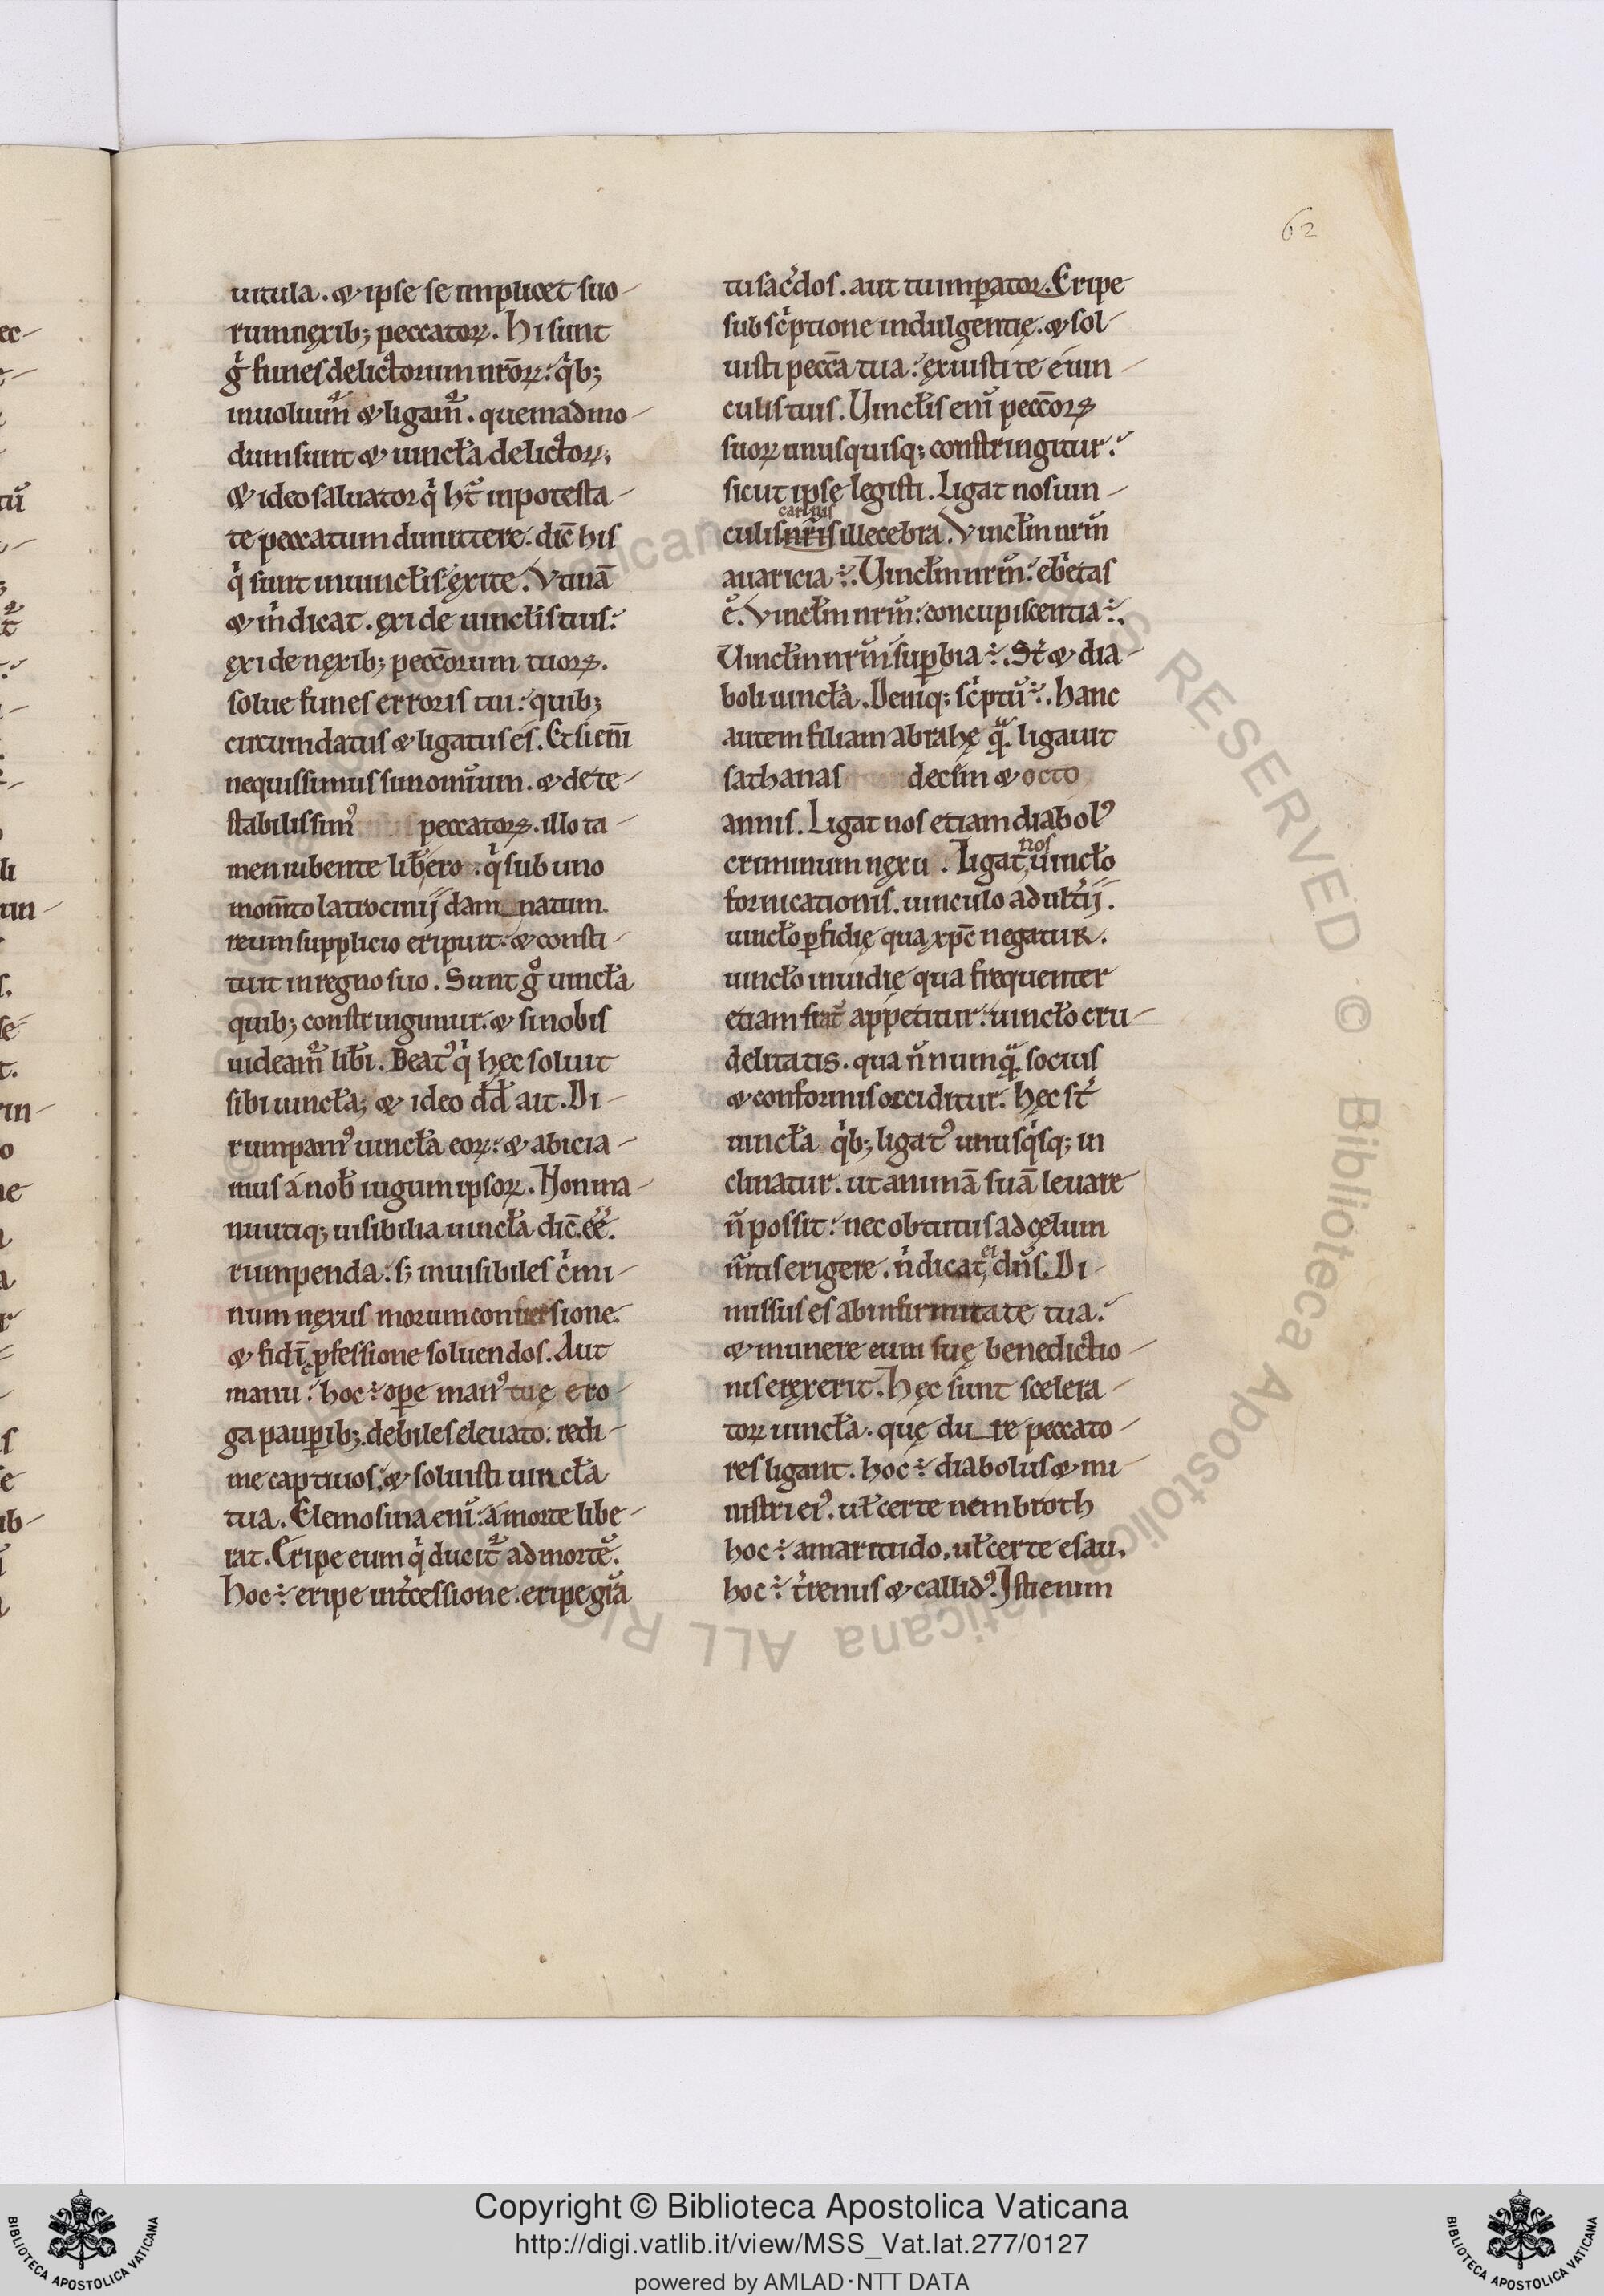 62
uitula. & ipse se implicet suo-
rum nęxib; peccatoꝝ. Hi sunt
gͥ funes delictorum nr̄oꝝ: qͥb;
inuoluim̃ & ligam̃. quemadmo-
dum sunt & uincła delictoꝝ.
& ideo saluator qͥ ht̄ in potesta-
te peccatum dimittere. dic̄ his
qͥ sunt in uincłis. ęxite. Vtinā
& m̍ dicat. ęxi de uincłis tuis:
ęxi de nęxib; pecc̄orum tuoꝝ.
solue funes erroris tui: quib;
circumdatus & ligatus es. Et si em̄
nequissimus sim omīum. & dete-
stabilissim᾽ peccatoꝝ. illo ta-
men iubente lib̄ero. qͥ sub uno
mom̄to latrocinij damnatum.
reum supplicio eripuit: & consti-
tuit in regno suo. Sunt gͦ uincła
quib; constringimur. & si nobis
uideam̃ lib̄i. Beat᾽ qͥ hęc soluit
sibi uincła; & ideo dd̄ ait. Di-
rumpam᾽ uincła eoꝝ: & abicia-
mus á nob̄ iugum ipsoꝝ. Non ma-
nu utiq; uisibilia uincła dic̄. ee̅.
rumpenda: s; inuisibiles c̍mi-
num nęxus morum conuersione.
& fidī ꝓfessione soluendos. Aut
manu: hoc ÷ oꝑe man᾽ tuę ero-
ga pauꝑib;. debiles eleuato: redi-
me captiuos: & soluisti uincła
tua. Elemosina eni̅: a morte libe-
rat. Eripe eum qͥ ducit̃ ad morte̅.
Hoc ÷ eripe int̍cessione. eripe gr̄a
tu sac̍dos. aut tu imꝑator. Eripe
subsc̍ptione indulgentię. & sol-
uisti pecc̄a tua: ęxuisti te é uin-
culis tuis. Uincłis eni̅ pecc̄oꝝ
suoꝝ unusquisq; constringitur:
sicut ipse legisti. Ligat nos uin-
carnis
culis nr̄is illecebra. Vincłm nrm̄
auaricia ÷. Uincłm nrm̄: eb̍etas
e̅. Vincłm nrm̄: concupiscentia ÷.
Uincłm nrm̄ suꝑbia ÷. St̄ & dia-
boli uincła. Deniq; sc̍ptu̅ ÷. hanc
autem filiam abrahę qͣ. ligauit
sathanas decem & octo
annis. Ligat nos etiam diabol᾽
nos
criminum nęxu. Ligat uincło
fornicationis. uinculo adult̍ij.
uincło ꝑfidię qua xp̄c negatur.
uincło inuidię qua frequenter
etiam frat̄ appetitur: uincło cru-
delitatis. qua n̄ numqͣ. socius
& conformis occiditur. hęc st̄
uincła qͥb; ligat᾽ unusqͥsq; in
clinatur. ut animā suā leuare
n̄ possit: nec obtutus ad cęlum
ei
m̄tis erigere. n̍ dicat dn̄s. Di-
missus es ab infirmitate tua:
& munere eum suę benedictio-
nis eręxerit. Hęc sunt scelera-
toꝝ uincła. quę dure peccato-
res ligant. hoc ÷ diabolus & mi-
nistri ei᾽. uł certe nembroth
hoc ÷ amaritudo. uł certe esau.
hoc ÷ t̍renus & callid᾽. Isti enim
Copyright © Biblioteca Apostolica Vaticana
http://digi.vatlib.it/view/MSS_Vat.lat.277/0127
powered by AMLAD·NTT DATA
BIBLIOTECA APOSTOLICA VATICANA
BIBLIOTECA APOSTOLICA VATICANA